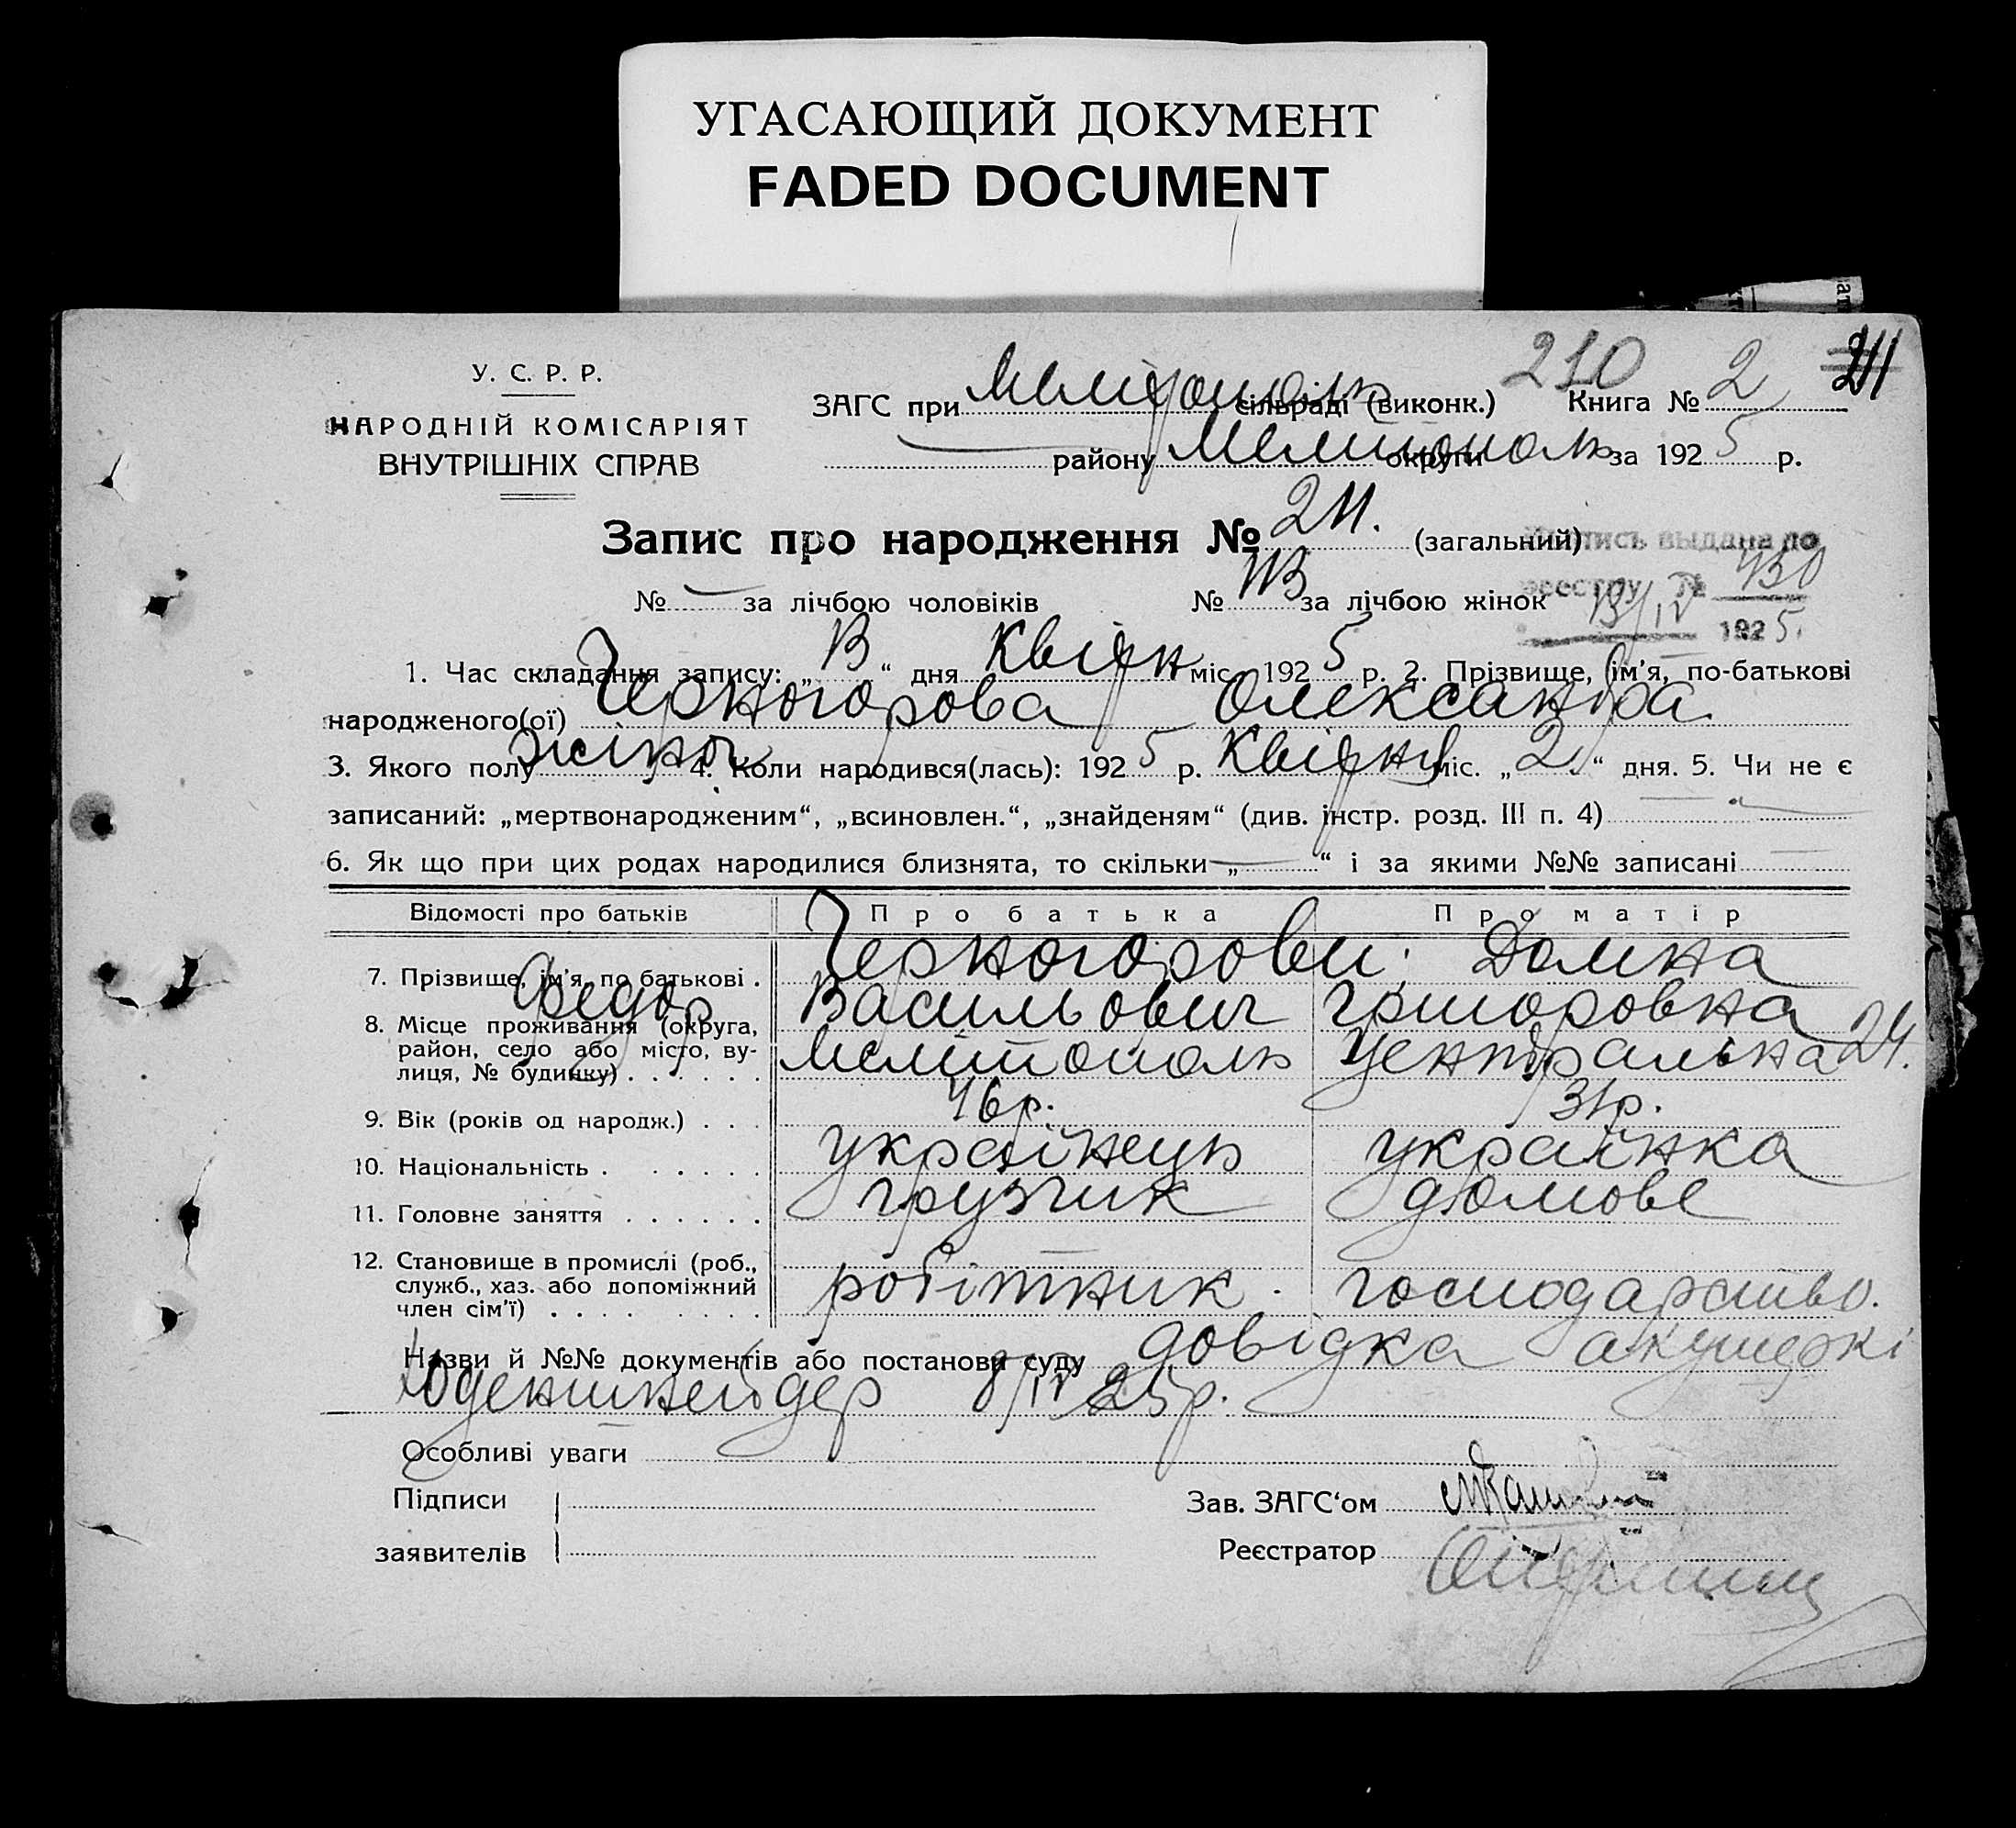 УГАСАЮЩИЙ ДОКУМЕНТ
FADED DOCUMENT
210 211
У. С. Р. Р.
НАРОДНІЙ КОМІСАРІЯТ
ВНУТРІШНІХ СПРАВ
ЗАГС при Мелітополь сільраді (виконк.) Книга № 2
району Мелітополь округи за 1925 р.
Запис про народження № 211. (загальний)
выдана по
реестру № 430
13/IV 1925.
№ за лічбою чоловіків № за лічбою жінок
1. Час складання запису: „13“ дня Квітн міс. 1925 р. 2. Прізвище, ім'я, по-батькові
народженого(ої) Черногорова Олександра.
3. Якого полу жіноч 4. Коли народився(лась): 1925 р. Квітня міс. „2“ дня. 5. Чи не є
записаний: „мертвонародженим“, „всиновлен.“, „знайденям“ (див. інстр. розд. III п. 4)
6. Як що при цих родах народилися близнята, то скільки „ “ і за якими №№ записані
Відомості про батьків Про батька Про матір
7. Прізвище, ім'я, по батькові . Черногорови. Домна
Федор Васильович Григоровна
8. Місце проживання (округа, район, село або місто, вулиця, № будинку) . . . . . . Мелітополь Центральна 24.
9. Вік (років од народж.) . . . 46р. 31р.
10. Національність . . . . . . українець українка
11. Головне заняття . . . . . . грузчик домове
12. Становище в промислі (роб., служб., хаз. або допоміжний член сім'ї) . . . . . . . . робітник. господарство.
Назви й №№ документів або постанови суду довідка акушеркі
Юденшнейдер 8/IV 25р.
Особливі уваги
Підписи
заявителів
Зав. ЗАГС'ом
Реєстратор